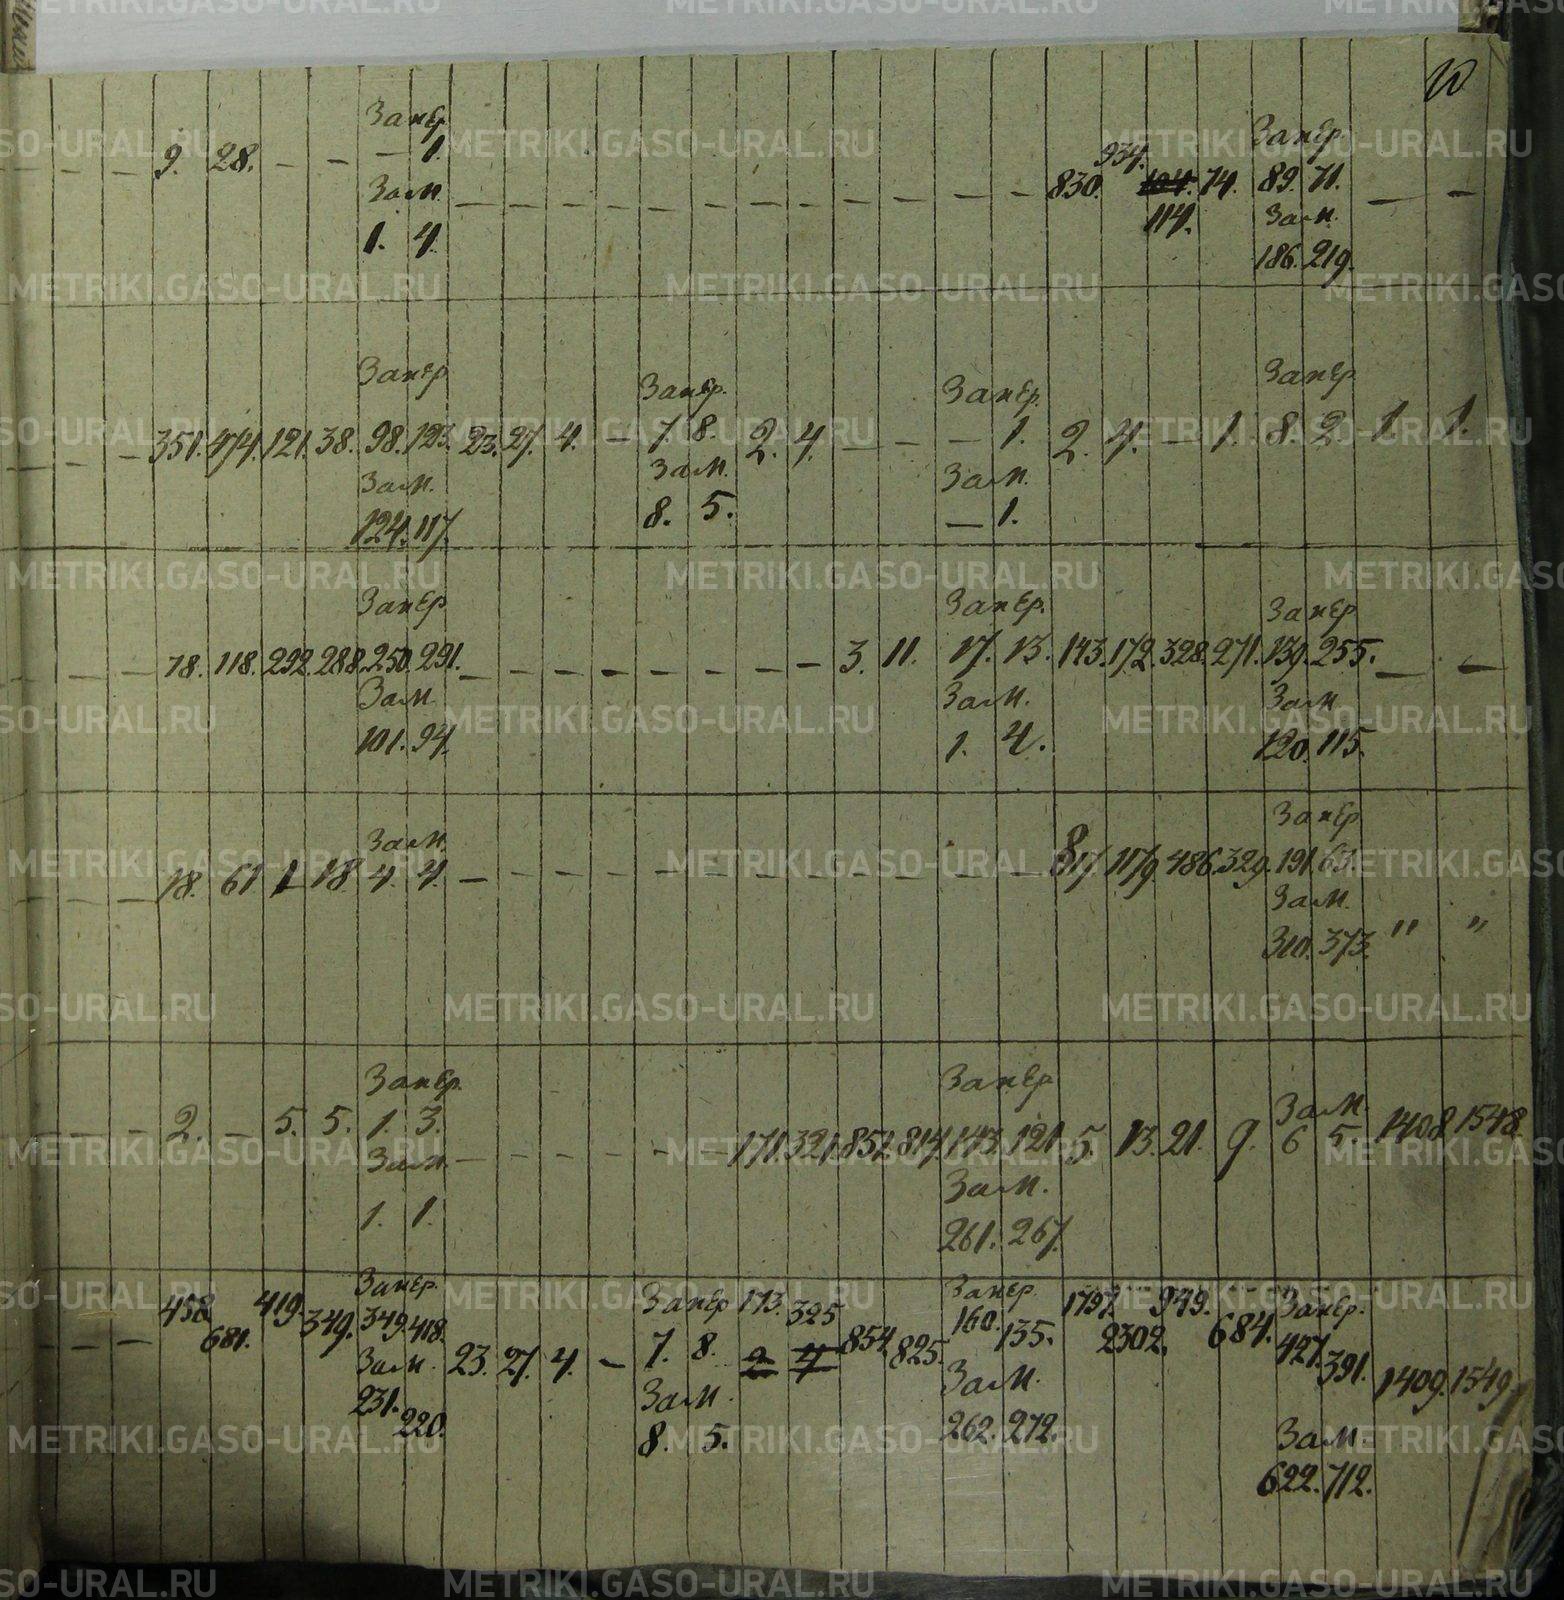 10
Запер.
— — 9. 28. — — — 1. — — — — — — — — — — — — 830. 934. 74. 89. 71. — —
Зам.
1. 4.
114.
Запер.
Зам.
186. 219.
Запер. Запер. Запер. Запер.
— — — 351. 474. 121. 38. 98. 123. 23. 27. 4. — 7. 8. 2. 4. — — — 1. 2. 4. — 1. 8. 2. 1. 1.
Зам. Зам. Зам.
124. 117. 8. 5. — 1.
Запер. Запер. Запер.
— — 78. 118. 292. 288. 250. 291. — — — — — — — — 3. 11. 17. 13. 143. 172. 328. 271. 139. 255. — —
Зам. Зам. Зам.
101. 94. 1. 4. 120. 115.
Зам. Запер.
— — — 18. 61 1 18 4. 4. — — — — — — — — — — — — 817. 1179. 486. 329. 191. 63.
Зам.
310. 373. " "
Запер. Запер.
— — — 2. — 5. 5. 1. 3. — — — — — — 171. 321. 851. 814. 143. 121. 5. 13. 21. 9. Зам. 6 5. 1408. 1548.
Зам. Зам.
1. 1. 261. 267.
Запер. Запер. Запер. Запер.
— — 458. 681. 419. 349. 349. 418. 23. 27. 4. — 7. 8. 173. 325 854. 825. 160. 135. 1797. 2302. 949. 684. 427. 391. 1409. 1549.
2 4
Зам. Зам. Зам. Зам.
231. 220. 8. 5. 262. 272. 622. 712.
METRIKI.GASO-URAL.RU